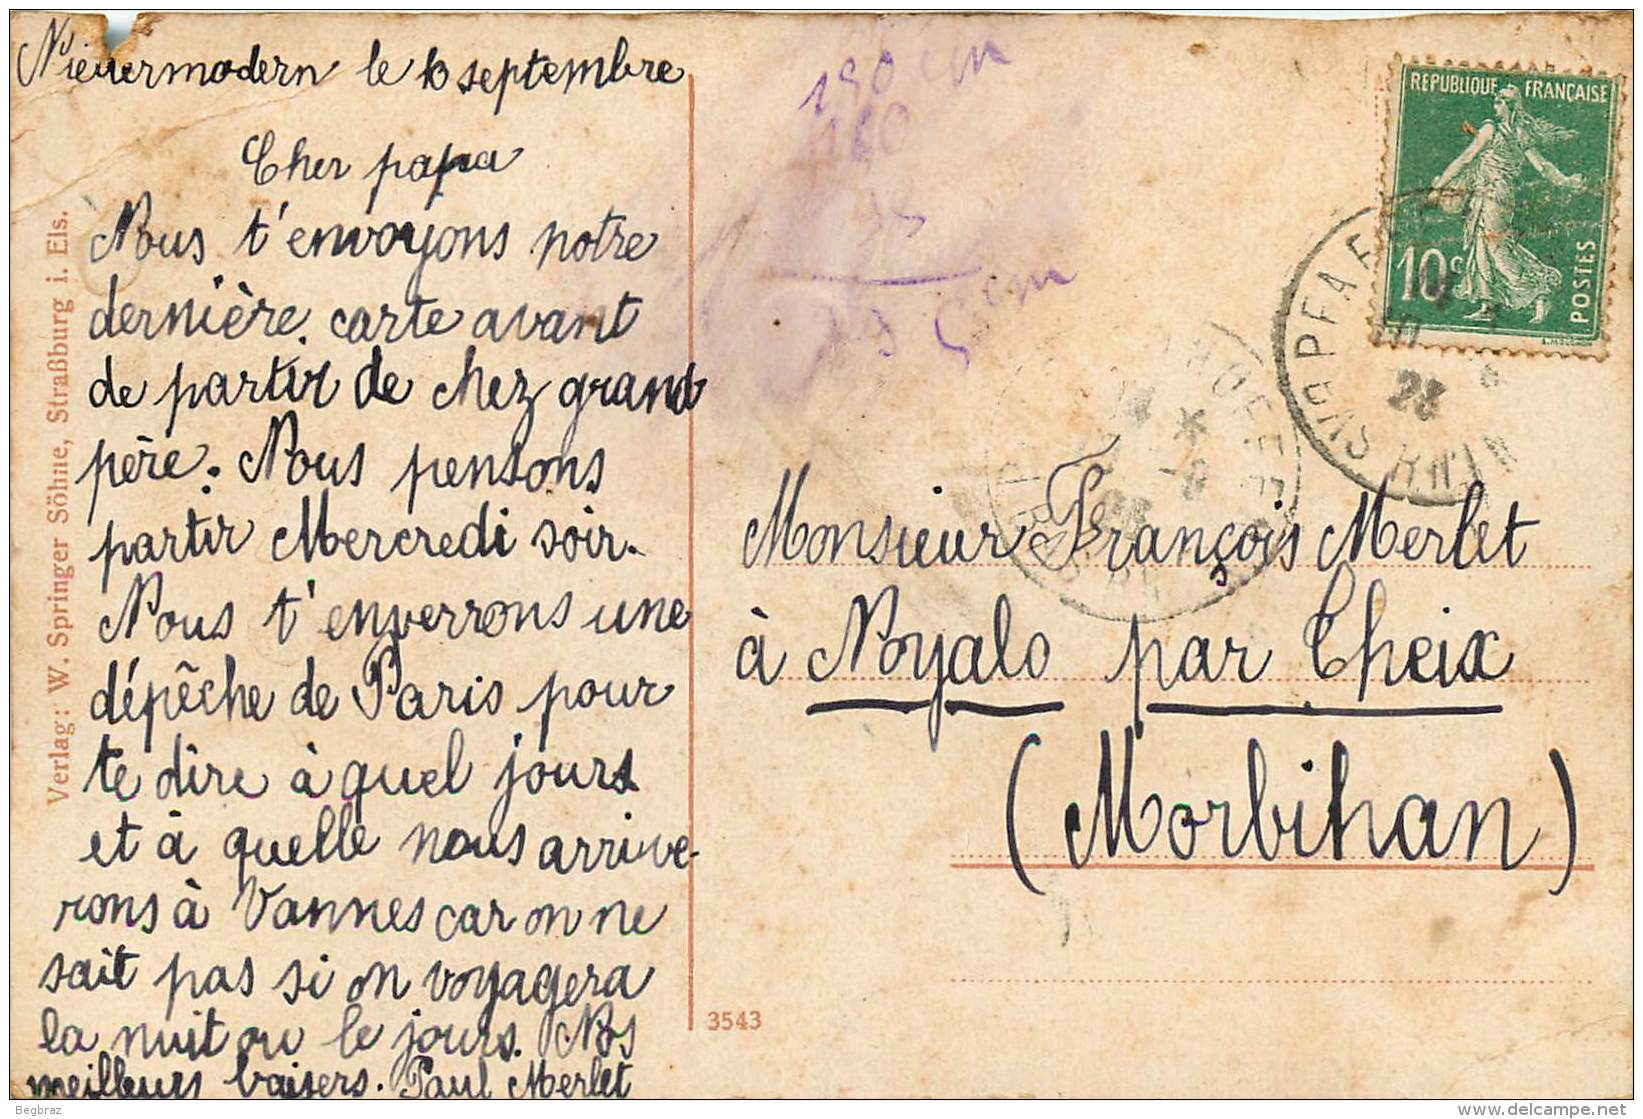 Nievermodern le 10 septembre
Cher papa
Nous t'envoyons notre
dernière carte avant
de partir de chez grand
père. Nous pensons
partir Mercredi soir.
Nous t'enverrons une
dépêche de Paris pour
te dire à quel jours
et à quelle nous arrive-
rons à Vannes car on ne
sait pas si on voyagera
la nuit ou le jours. Nos
meilleurs baisers. Paul Merlet
Verlag: W. Springer Söhne, Straßburg i. Els.
190 cm
160
95
3543
REPUBLIQUE FRANÇAISE
10c
POSTES
PFAF
RHIN
23
Monsieur François Merlet
à Noyalo par Theix
(Morbihan)
Begbraz
delcampe.net